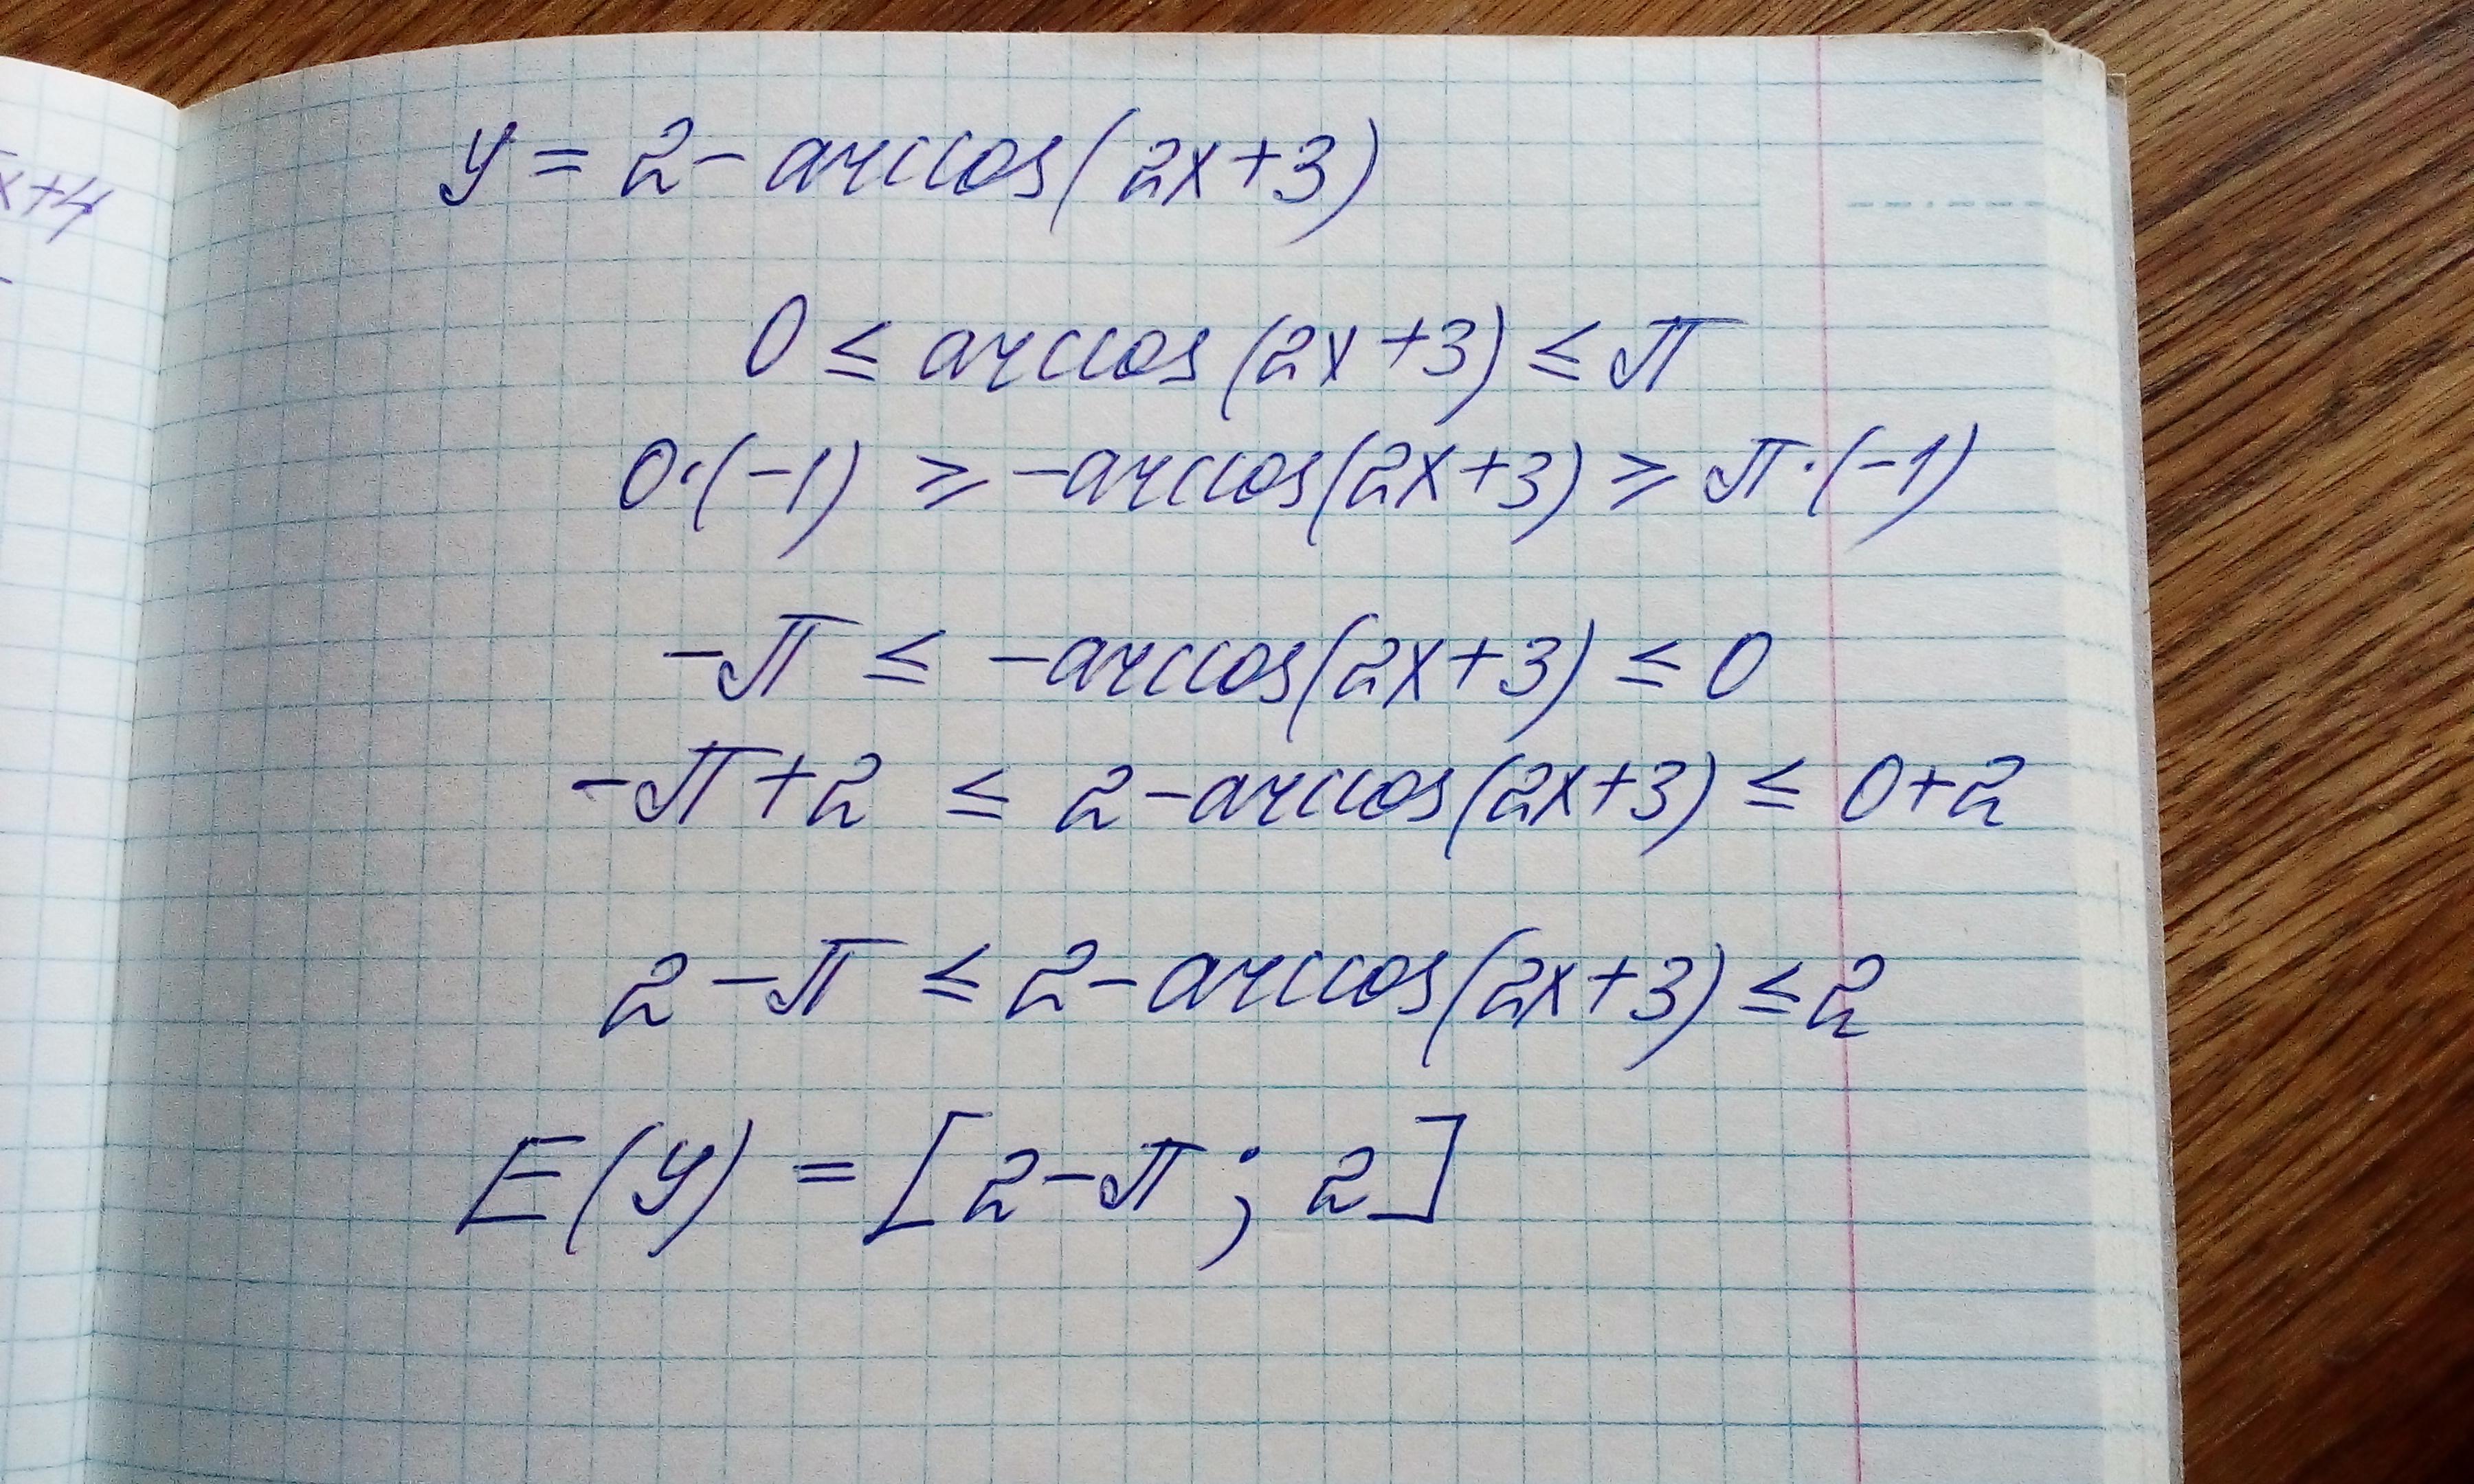 x+4
y = 2 - arccos(2x+3)
0 ≤ arccos(2x+3) ≤ π
0·(-1) ≥ -arccos(2x+3) ≥ π·(-1)
-π ≤ -arccos(2x+3) ≤ 0
-π+2 ≤ 2-arccos(2x+3) ≤ 0+2
2-π ≤ 2-arccos(2x+3) ≤ 2
E(y) = [2-π; 2]